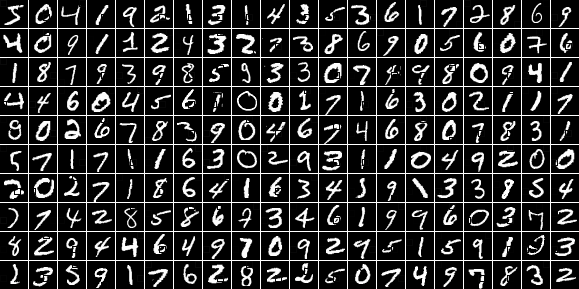 5 0 4 1 9 2 1 3 1 4 3 5 3 6 1 7 2 8 6 9
4 0 9 1 1 2 4 3 2 7 3 8 6 9 0 5 6 0 7 6
1 8 7 9 3 9 8 5 9 3 3 0 7 4 9 8 0 9 4 1
4 4 6 0 4 5 6 1 0 0 1 7 1 6 3 0 2 1 1 7
9 0 2 6 7 8 3 9 0 4 6 7 4 6 8 0 7 8 3 1
5 7 1 7 1 1 6 3 0 2 9 3 1 1 0 4 9 2 0 0
2 0 2 7 1 8 6 4 1 6 3 4 5 9 1 3 3 8 5 4
7 7 4 2 8 5 8 6 7 3 4 6 1 9 9 6 0 3 7 2
8 2 9 4 4 6 4 9 7 0 9 2 9 5 1 5 9 1 2 3
2 3 5 9 1 7 6 2 8 2 2 5 0 7 4 9 7 8 3 2